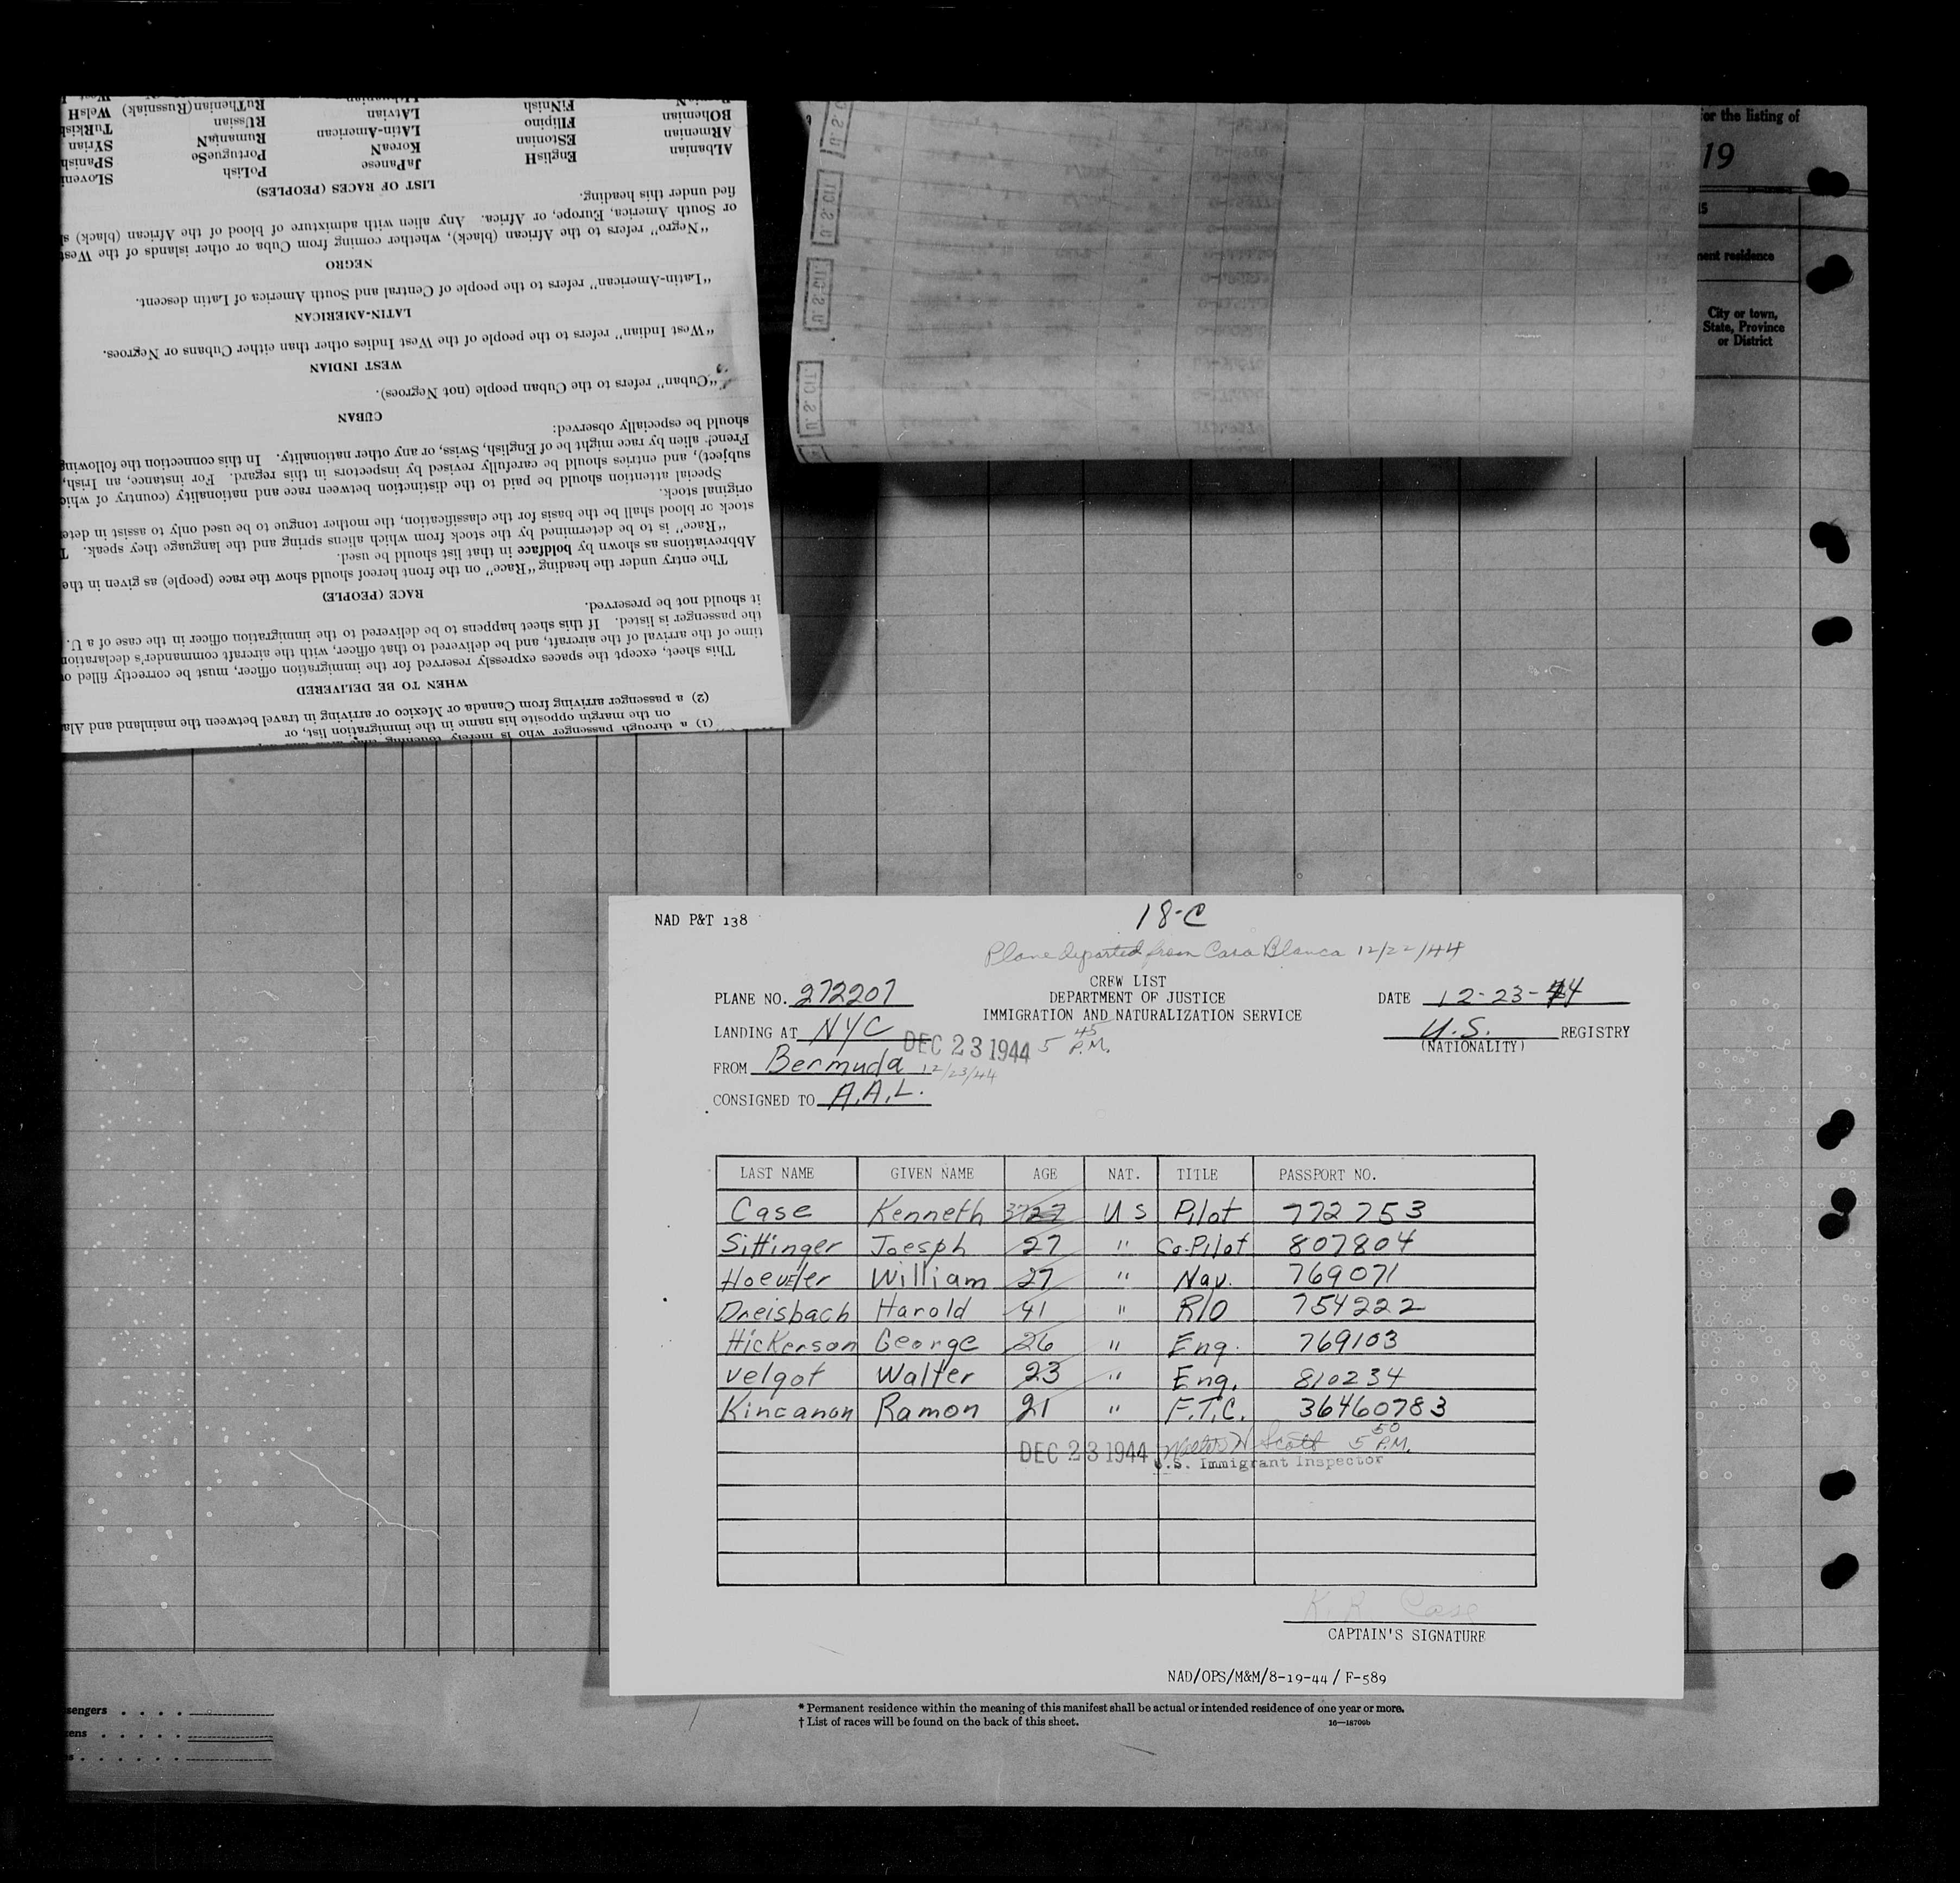 or the listing of
19
15
nent residence
City or town,
State, Province
or District
U. S. CIT.
U. S. CIT.
U. S. CIT.
U. S. CIT.
(1) a through passenger who is merely touching
on the margin opposite his name in the immigration list, or
(2) a passenger arriving from Canada or Mexico or arriving in travel between the mainland and Ala
WHEN TO BE DELIVERED
This sheet, except the spaces expressly reserved for the immigration officer, must be correctly filled o
time of the arrival of the aircraft, and be delivered to that officer, with the aircraft commander's declaration
the passenger is listed. If this sheet happens to be delivered to the immigration officer in the case of a U.
it should not be preserved.
RACE (PEOPLE)
The entry under the heading "Race" on the front hereof should show the race (people) as given in the
Abbreviations as shown by boldface in that list should be used.
"Race" is to be determined by the stock from which aliens spring and the language they speak. T
stock or blood shall be the basis for the classification, the mother tongue to be used only to assist in dete
original stock.
Special attention should be paid to the distinction between race and nationality (country of whic
subject), and entries should be carefully revised by inspectors in this regard. For instance, an Irish,
French alien by race might be of English, Swiss, or any other nationality. In this connection the following
should be especially observed:
CUBAN
"Cuban" refers to the Cuban people (not Negroes).
WEST INDIAN
"West Indian" refers to the people of the West Indies other than either Cubans or Negroes.
LATIN-AMERICAN
"Latin-American" refers to the people of Central and South America of Latin descent.
NEGRO
"Negro" refers to the African (black), whether coming from Cuba or other islands of the West
or South America, Europe, or Africa. Any alien with admixture of blood of the African (black) s
fied under this heading.
LIST OF RACES (PEOPLES)
ALbanian EnglisH JaPanese PoLish SLoveni
ARmenian EStonian KoreaN PortugueSe SPanish
BOhemian FIlipino LAtin-American RumaniaN SYrian
FiNnish LAtvian RUssian TuRkish
RuThenian (Russniak) WelsH
NAD P&T 138
18-C
Plane departed from Casa Blanca 12/22/44
CREW LIST
PLANE NO. 272207 DEPARTMENT OF JUSTICE DATE 12-23-44
IMMIGRATION AND NATURALIZATION SERVICE
LANDING AT NYC DEC 23 1944 5 45 P.M. U.S. REGISTRY
(NATIONALITY)
FROM Bermuda 12/23/44
CONSIGNED TO A.A.L.
LAST NAME GIVEN NAME AGE NAT. TITLE PASSPORT NO.
Case Kenneth 37 U S Pilot 772753
Sittinger Joesph 27 " Co-Pilot 807804
Hoeveler William 27 " Nav. 769071
Dreisbach Harold 41 " R/O 754222
Hickerson George 26 " Eng. 769103
Velgot Walter 23 " Eng. 810234
Kincanon Ramon 21 " F.T.C. 36460783
DEC 23 1944 Walter W Scott 5 50 P.M.
U.S. Immigrant Inspector
K. R. Case
CAPTAIN'S SIGNATURE
NAD/OPS/M&M/8-19-44 / F-589
sengers
zens
s
* Permanent residence within the meaning of this manifest shall be actual or intended residence of one year or more.
† List of races will be found on the back of this sheet. 16—18706b